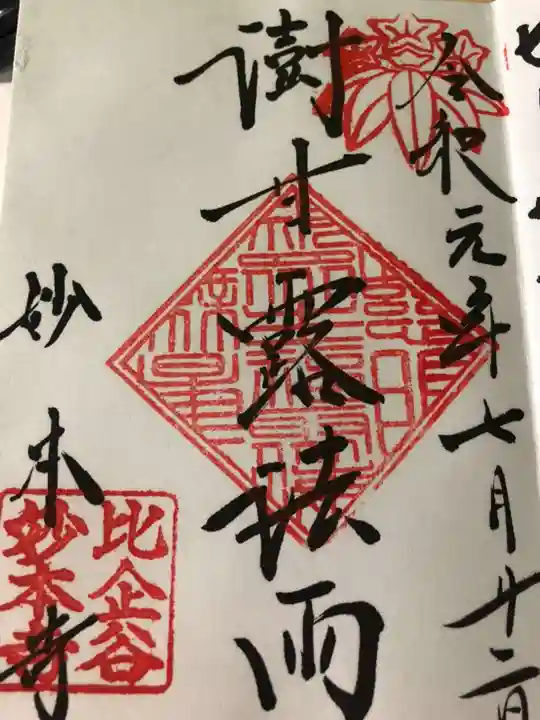 令和元年七月廿二日
澍甘露法雨
妙本寺
比企谷
妙本寺